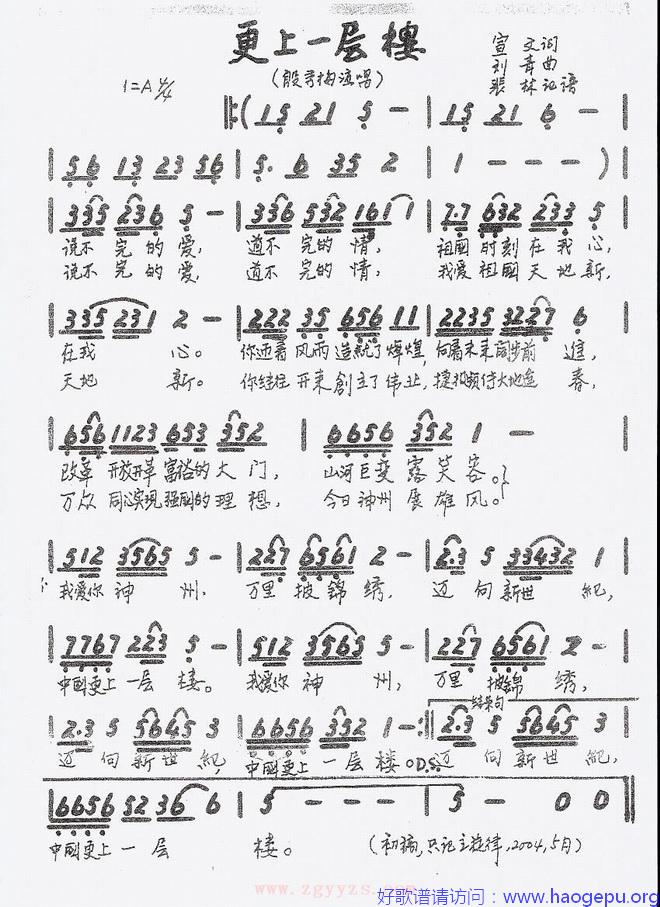 更上一层楼
宣文词
(殷秀梅演唱) 刘青曲
1=A 4/4 裴林记谱
‖:( 15 21 5 - | 15 21 6 - |
| 56 13 23 56 | 5. 6 35 2 | 1 - - - )
| 335 236 5 - | 336 532 161 1 | 7.7 632 233 5 |
说不完的爱, 道不完的情, 祖国时刻在我心,
说不完的爱, 道不完的情, 我爱祖国天地新,
| 335 231 2 - | 222 35 656 11 | 2235 3227 6 |
在我心。 你迎着风雨造就了辉煌, 向着未来同步前进,
天地新。 你继往开来创立了伟业,
| 656 1123 653 3352 | 6656 352 1 - |
改革开放开革富裕的大门, 山河巨变露笑容。
万众同心实现强国的理想, 今日神州展雄风。
| 512 3565 5 - | 227 6561 2 - | 2.3 5 33432 1 |
我爱你神州, 万里披锦绣, 迈向新世纪,
| 7767 223 5 - | 512 3565 5 - | 227 6561 2 - |
中国更上一层楼。 我爱你神州, 万里披锦绣,
结束句
| 2.3 5 5645 3 | 6656 352 1 - :‖ 2.3 5 5645 3 |
迈向新世纪, 中国更上一层楼。D.S. 迈向新世纪,
| 6656 52 36 6 | 5 - - - | 5 - 0 0 ‖
中国更上一层楼。 (初稿,只记主旋律,2004,5月)
www.zgyyzs.com
好歌谱请访问:www.haogepu.org